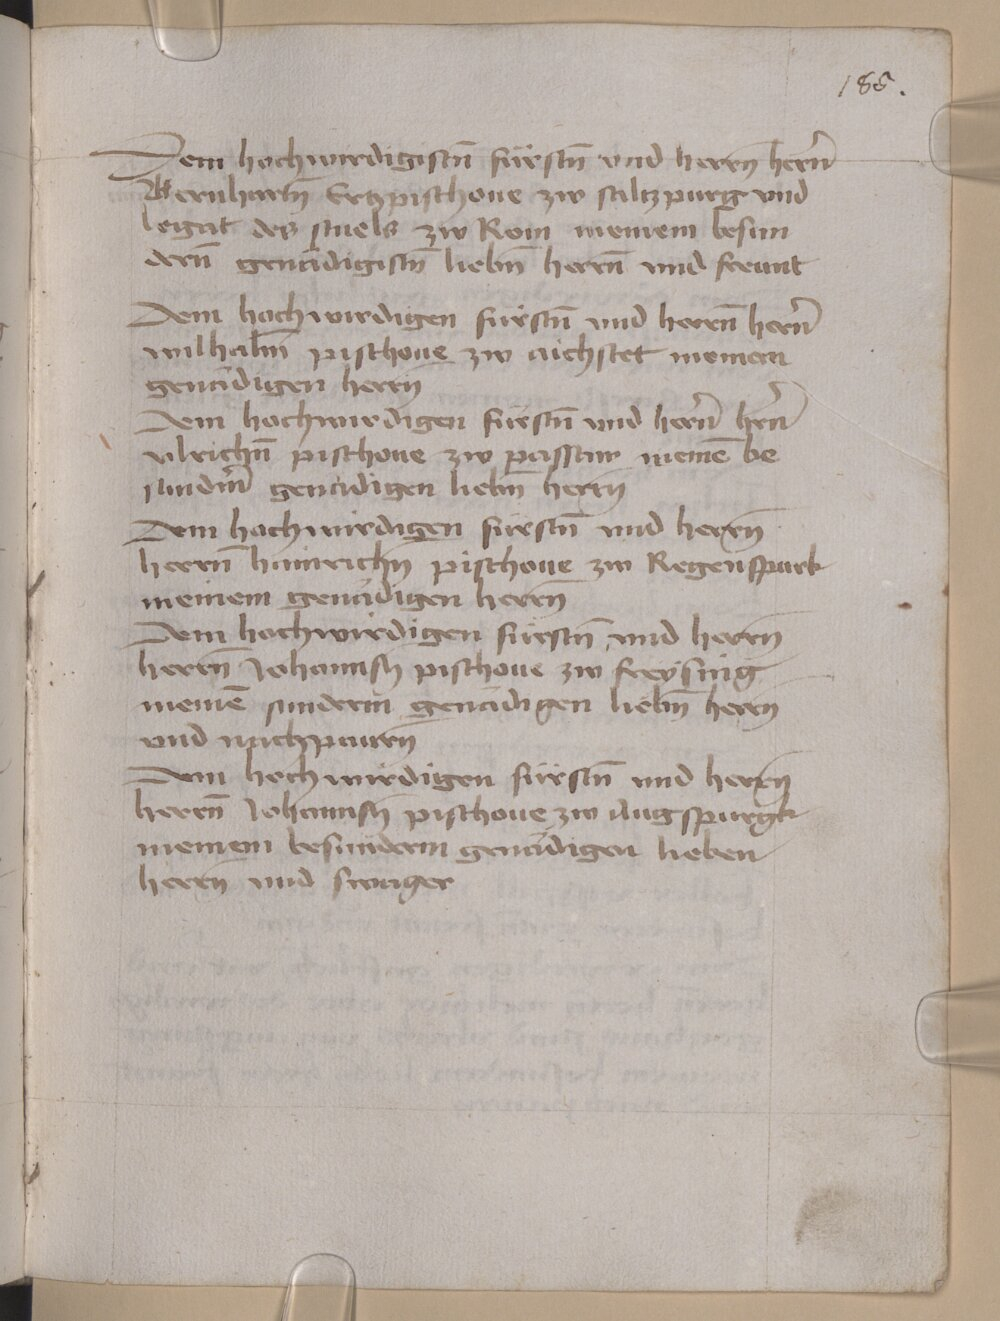 188.
Dem hochwirdigistn̄ fürstn̄ vnd herrn hern̄
Bernhartn̄ Ertzpischoue zw saltzpurg vnd
legat des stuels zw Rom meinem besun
dern̄ genädigistn̄ liebn̄ herrn̄ vnd freunt
Dem hochwirdigen fürstn̄ vnd herrn̄ hern̄
wilhalm̄ pischoue zw aichstet meinem
genädigen herrn
Dem hochwirdigen fürstn̄ vnd hern̄ hrn̄
vlrichn̄ pischoue zw passaw meinē be
sundern̄ genädigen liebn̄ herrn
Dem hochwirdigen fürstn̄ vnd herrn
herrn̄ hainrichn pischoue zw Regenspurk
meinem genädigen herrn
Dem hochwirdigen fürstn̄ vnd herrn
herrn̄ Johannsn pischoue zw freysing
meinē sunderm genädigen liebn̄ herrn
vnd nachpaurn
Dem hochwirdigen fürstn̄ vnd herrn
herrn̄ Johannsn pischoue zw Augspurgk
meinem besunderm genädigen lieben
herrn vnd swager